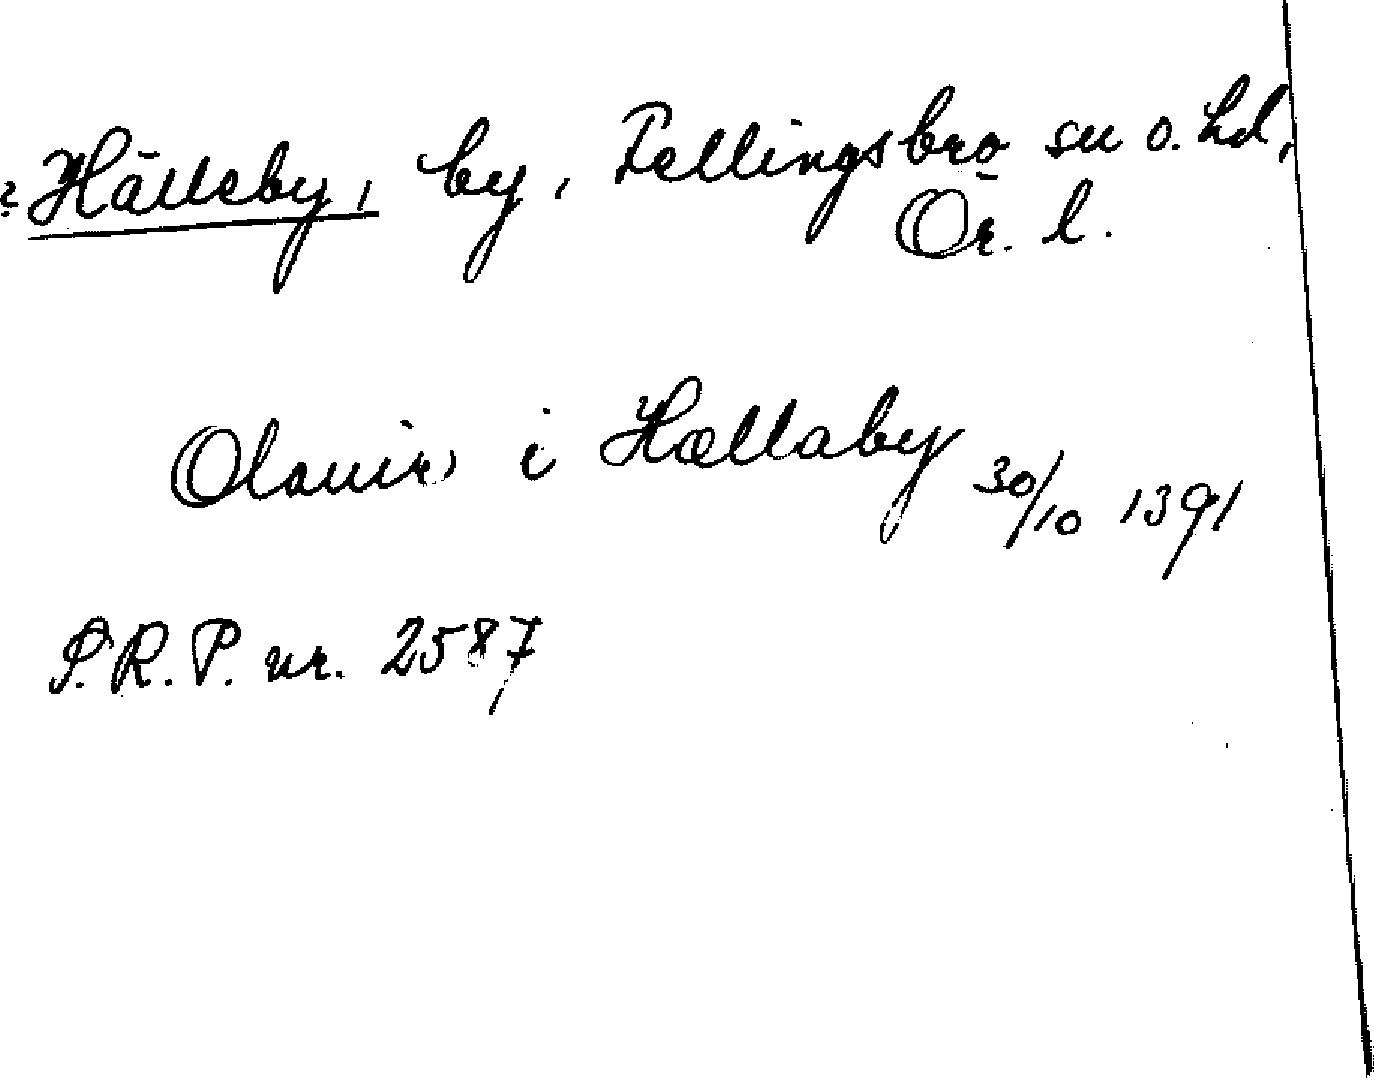 ? Hälleby, by, Fellingsbro sn o. hd,
Ör. l.
Olauir i Hællaby 30/10 1391
S.R.P. nr. 2587